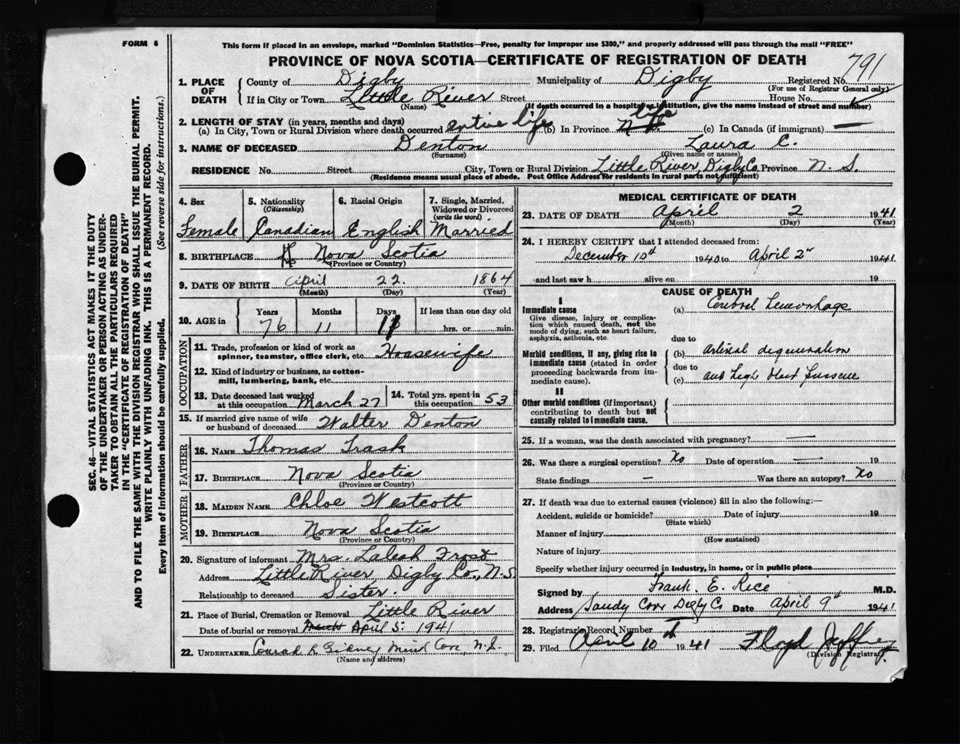 FORM 6
This form if placed in an envelope, marked "Dominion Statistics—Free, penalty for improper use $300," and properly addressed will pass through the mail "FREE"
PROVINCE OF NOVA SCOTIA—CERTIFICATE OF REGISTRATION OF DEATH
1. PLACE OF DEATH
County of Digby Municipality of Digby Registered No. 791
(For use of Registrar General only)
If in City or Town Little River Street House No.
(Name) (If death occurred in a hospital or institution, give the name instead of street and number)
2. LENGTH OF STAY (in years, months and days)
(a) In City, Town or Rural Division where death occurred entire life (b) In Province N.S. life (c) In Canada (if immigrant) —
3. NAME OF DECEASED Denton Laura C.
(Surname) (Given name or names)
RESIDENCE No. Street City, Town or Rural Division Little River, Digby Co Province N. S.
(Residence means usual place of abode. Post Office Address for residents in rural parts not sufficient)
4. Sex 5. Nationality (Citizenship) 6. Racial Origin 7. Single, Married, Widowed or Divorced (write the word)
Female Canadian English Married
8. BIRTHPLACE Nova Scotia
(Province or Country)
9. DATE OF BIRTH April 22 1864
(Month) (Day) (Year)
10. AGE in Years Months Days If less than one day old
76 11 11 hrs. or min.
OCCUPATION
11. Trade, profession or kind of work as spinner, teamster, office clerk, etc. Housewife
12. Kind of industry or business, as cotton-mill, lumbering, bank, etc.
13. Date deceased last worked at this occupation March 27 14. Total yrs. spent in this occupation 53
15. If married give name of wife or husband of deceased Walter Denton
FATHER
16. NAME Thomas Trask
17. BIRTHPLACE Nova Scotia
(Province or Country)
MOTHER
18. MAIDEN NAME Chloe Westcott
19. BIRTHPLACE Nova Scotia
(Province or Country)
20. Signature of informant Mrs. Laleah Frost
Address Little River Digby Co., N.S.
Relationship to deceased Sister.
21. Place of Burial, Cremation or Removal Little River
Date of burial or removal March April 5: 1941
22. UNDERTAKER Conrad R Gidney Mink Cove, N.S.
(Name and address)
MEDICAL CERTIFICATE OF DEATH
23. DATE OF DEATH April 2 1941
(Month) (Day) (Year)
24. I HEREBY CERTIFY that I attended deceased from:
December 10th 1940 to April 2nd 1941
and last saw h alive on 19
CAUSE OF DEATH
I
Immediate cause (a) Cerebral Hemorrhage
Give disease, injury or complication which caused death, not the mode of dying, such as heart failure, asphyxia, asthenia, etc.
due to
Morbid conditions, if any, giving rise to immediate cause (stated in order proceeding backwards from immediate cause).
(b) arterial degeneration
due to
(c) and high blood pressure
II
Other morbid conditions (if important) contributing to death but not causally related to immediate cause.
25. If a woman, was the death associated with pregnancy? —
26. Was there a surgical operation? No Date of operation — 19
State findings — Was there an autopsy? No
27. If death was due to external causes (violence) fill in also the following:—
Accident, suicide or homicide? Date of injury 19
(State which)
Manner of injury
(How sustained)
Nature of injury
Specify whether injury occurred in industry, in home, or in public place
Signed by Frank E. Rice M.D.
Address Sandy Cove Digby Co Date April 9th 1941
28. Registrar's Record Number
29. Filed April 10 1941 Floyd Jeffrey
(Division Registrar)
SEC. 46—VITAL STATISTICS ACT MAKES IT THE DUTY
OF THE UNDERTAKER OR PERSON ACTING AS UNDER-
TAKER TO OBTAIN ALL THE PARTICULARS REQUIRED
IN THE "CERTIFICATE OF REGISTRATION OF DEATH"
AND TO FILE THE SAME WITH THE DIVISION REGISTRAR WHO SHALL ISSUE THE BURIAL PERMIT.
WRITE PLAINLY WITH UNFADING INK. THIS IS A PERMANENT RECORD.
Every item of information should be carefully supplied. (See reverse side for instructions.)